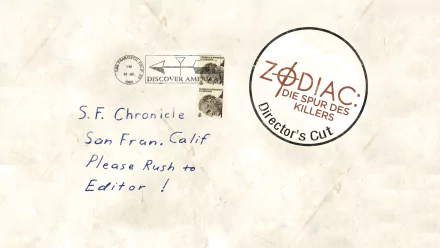 DISCOVER AMERICA
S.F. Chronicle
San Fran. Calif
Please Rush to
Editor !
ZODIAC:
DIE SPUR DES
KILLERS
Director's Cut